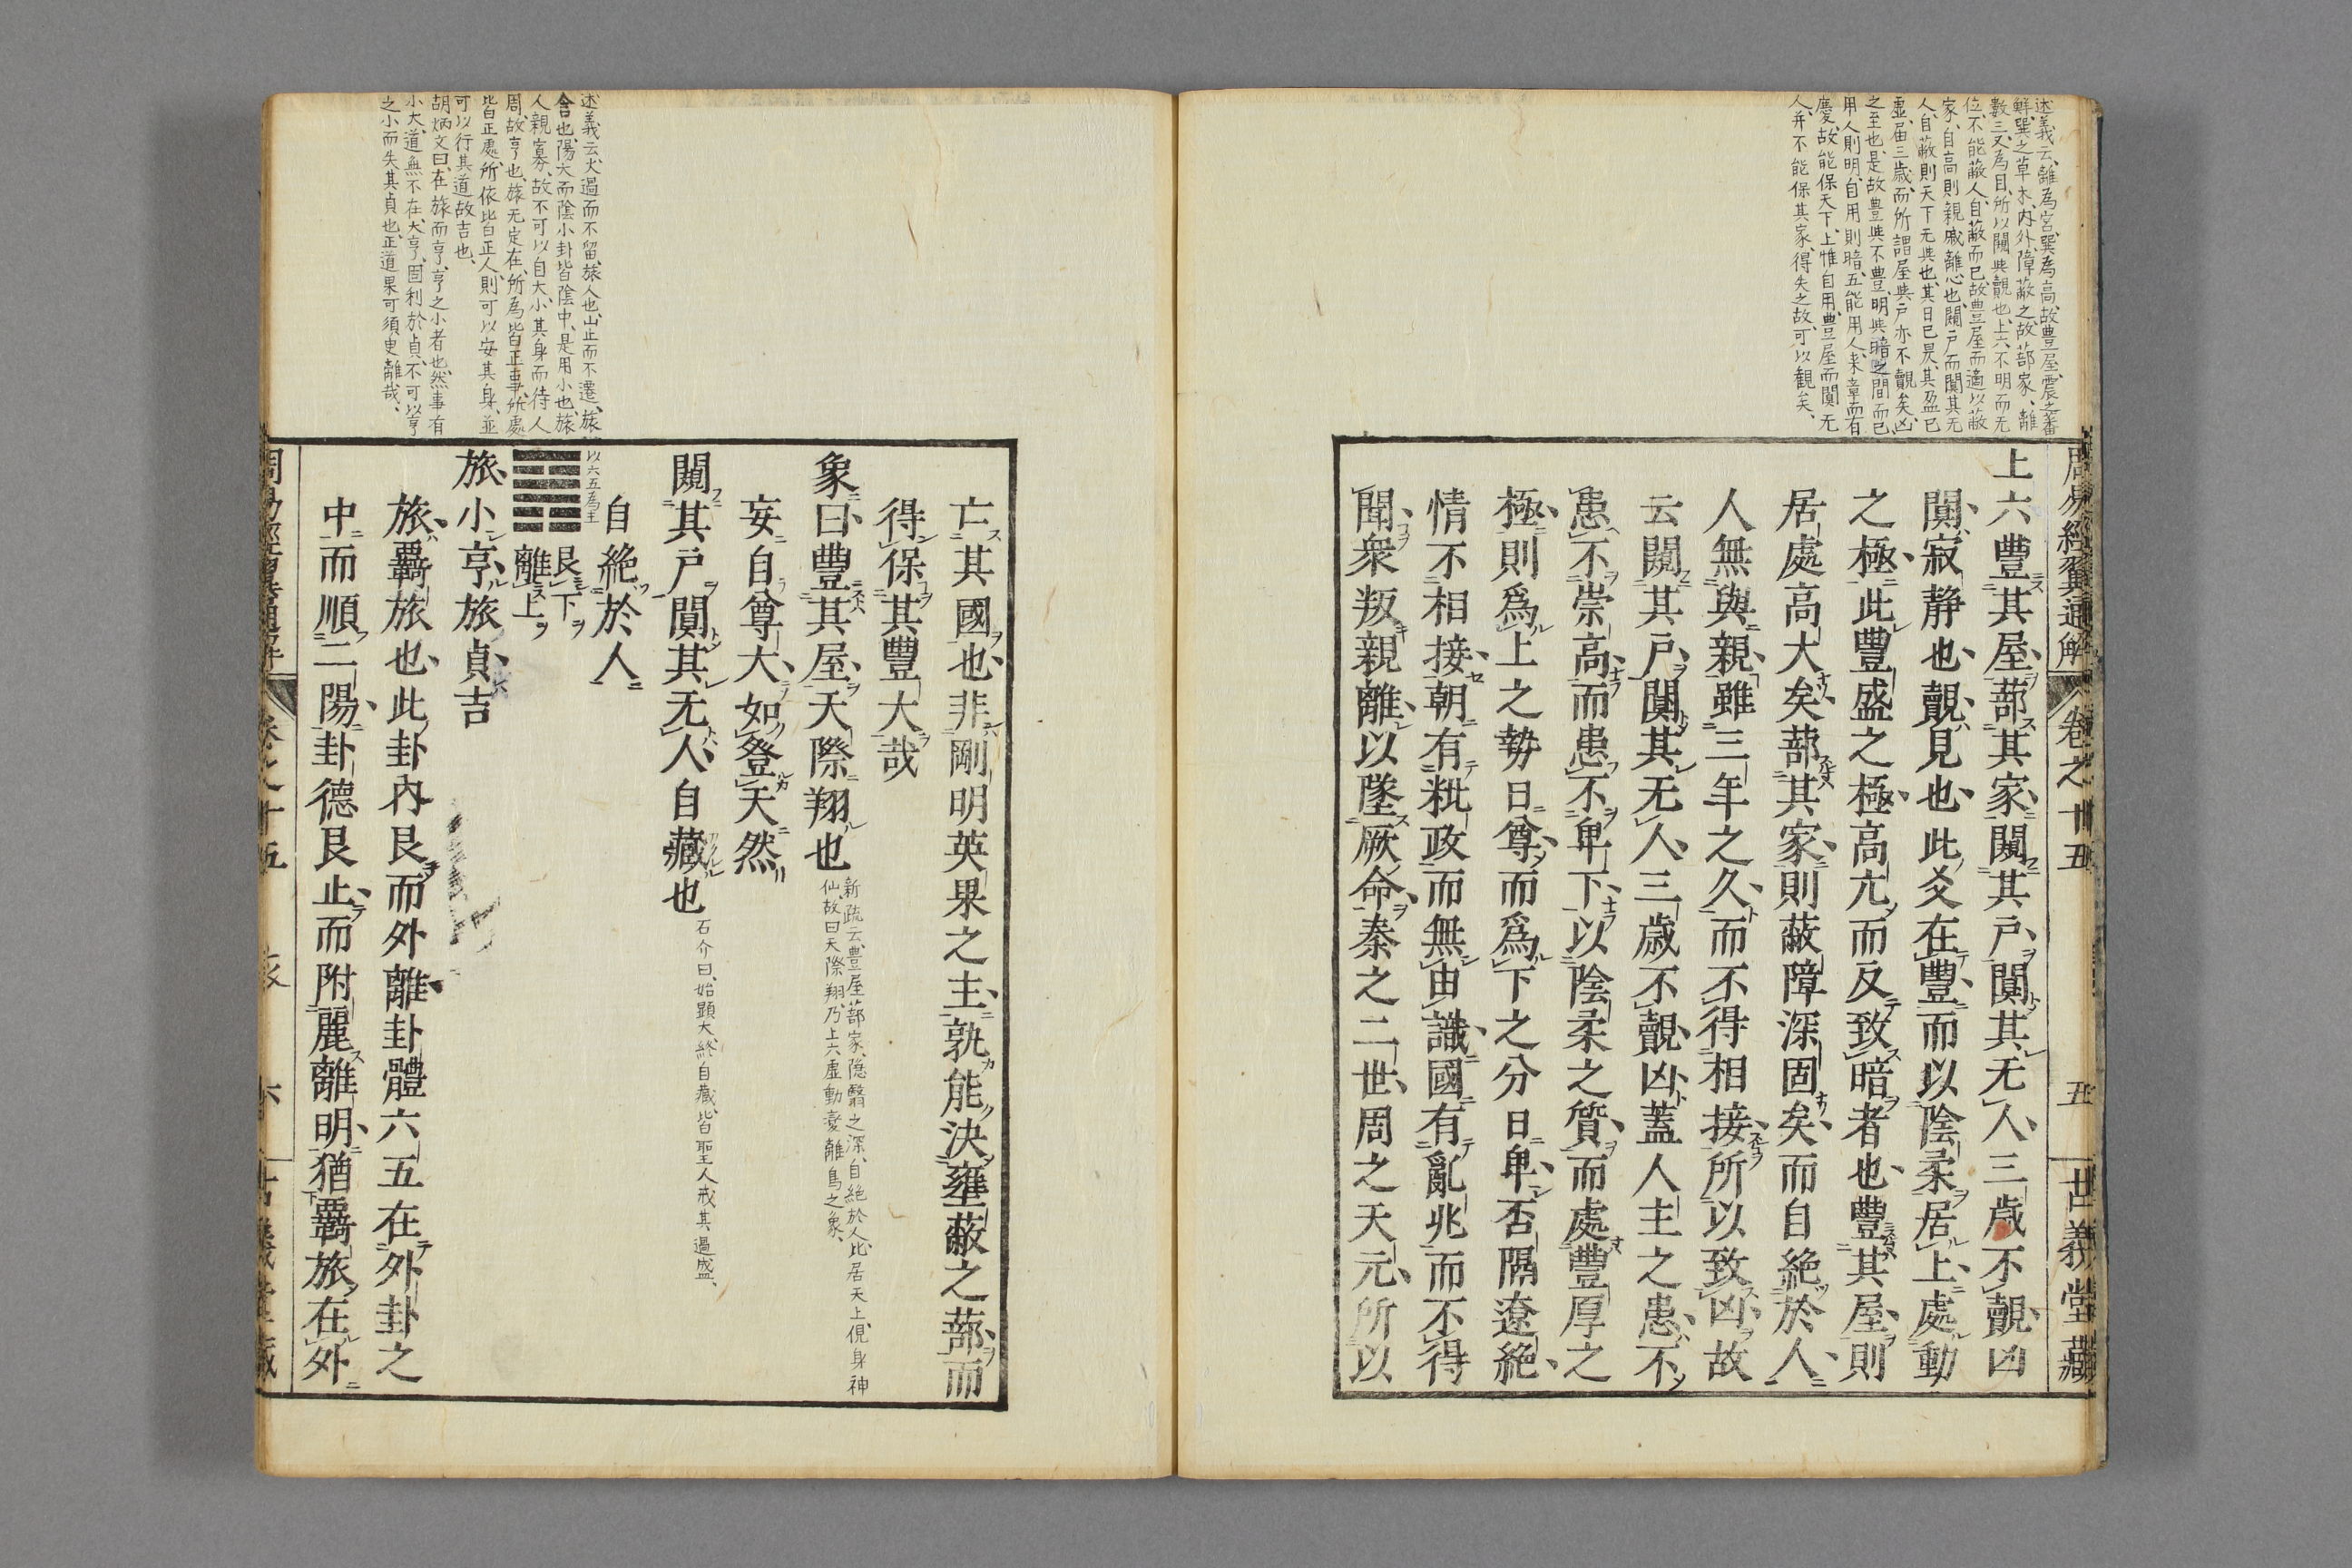 述義云、離為宮、巽為高、故豊屋、震之蕃
鮮、巽之草木、内外障蔽之、故蔀家、離
數三、又為目、所以闚與覿也、上六不明而无
位、不能蔽人、自蔽而已、故豊屋而適以蔽
家、自高則親戚離心也、闚戸而闃其无
人、自蔽則天下无與也、其日已昃、其盈已
虚、届三歳、而所謂屋與戸亦不覿矣、凶
之至也、是故豊與不豊、明與暗之間而已
用人則明、自用則暗、五能用人、来章而有
慶、故能保天下、上惟自用、豊屋而闃无
人、并不能保其家、得失之故、可以観矣、
周易經翼通解 卷之十五 五 古義堂藏
上六豐其屋蔀其家闚其戸闃其无人三歲不覿凶
闃寂静也覿見也此爻在豐而以陰柔居上處動
之極此豐盛之極高亢而反致暗者也豐其屋則
居處高大矣蔀其家則蔽障深固矣而自絶於人
人無與親雖三年之久而不得相接所以致凶故
云闚其戸闃其无人三歲不覿凶蓋人主之患不
患不崇高而患不卑下以陰柔之質而處豐厚之
極則爲上之勢日尊而爲下之分日卑否隔遼絶
情不相接朝有粃政而無由識國有亂兆而不得
聞衆叛親離以墜厥命秦之二世周之天元所以
亡其國也非剛明英果之主孰能決壅蔽之蔀而
得保其豐大哉
象曰豐其屋天際翔也
新疏云、豊屋蔀家、隠翳之深、自絶於人、比居天上、俔身神
仙、故曰天際翔、乃上六虚動変離鳥之象、
妄自尊大如登天然
闚其戸闃其无人自藏也
石介曰、始顕大、終自藏、皆聖人戒其過盛、
自絶於人
以六五為主
艮下
離上
旅小亨旅貞吉
旅覊旅也此卦内艮而外離卦體六五在外卦之
中而順二陽卦德艮止而附麗離明猶覊旅在外
述義云、火過而不留、旅人也、山止而不遷、旅
舎也、陽大而陰小、卦皆陰中、是用小也、旅
人親寡、故不可以自大、小其身而待人
周、故亨也、旅无定在、所為皆正事、所處
皆正處、所依皆正人、則可以安其身、並
可以行其道、故吉也、
胡炳文曰、在旅而亨、亨之小者也、然事有
小大、道無不在、大亨、固利於貞、不可以亨
之小而失其貞也、正道果可須臾離哉、
卷之十五